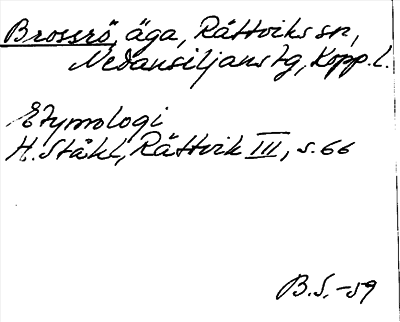 Brossrö, äga, Rättviks sn,
Nedansiljans tg, Kopp. l.
Etymologi
H. Ståhl, Rättvik III, s. 66
B.S. -59